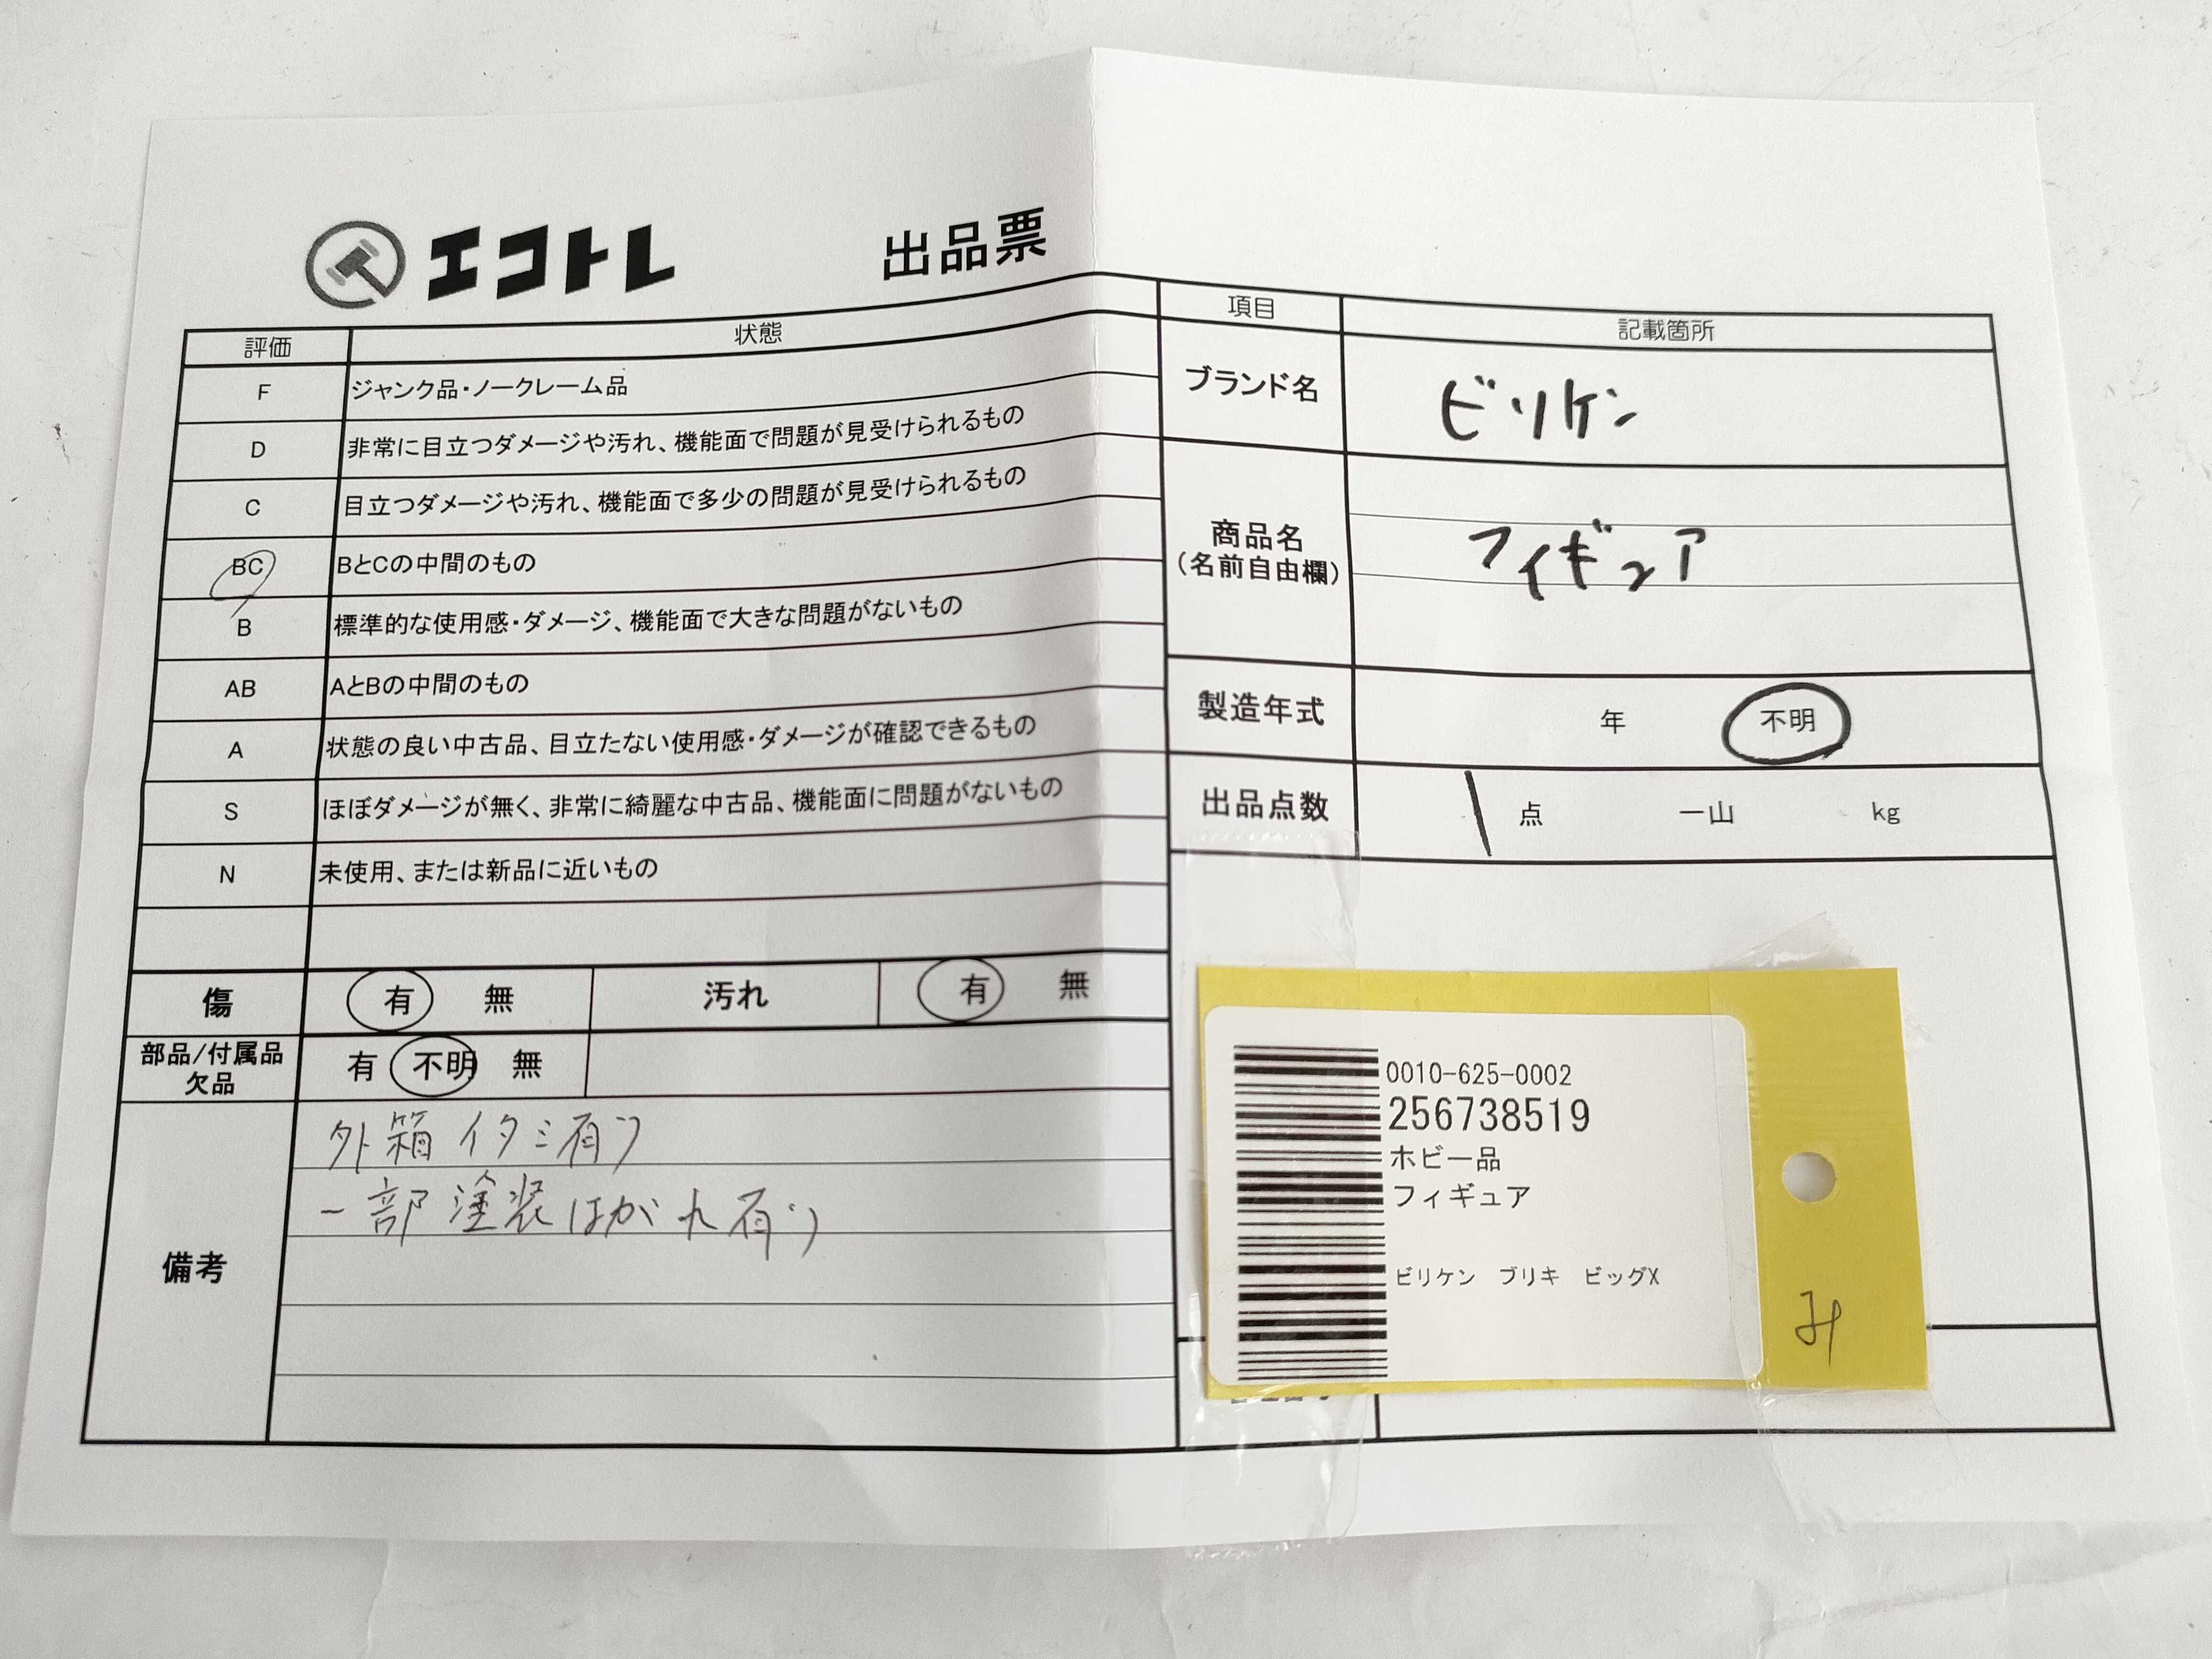 エコトレ 出品票
評価 状態
F ジャンク品・ノークレーム品
D 非常に目立つダメージや汚れ、機能面で問題が見受けられるもの
C 目立つダメージや汚れ、機能面で多少の問題が見受けられるもの
BC BとCの中間のもの
B 標準的な使用感・ダメージ、機能面で大きな問題がないもの
AB AとBの中間のもの
A 状態の良い中古品、目立たない使用感・ダメージが確認できるもの
S ほぼダメージが無く、非常に綺麗な中古品、機能面に問題がないもの
N 未使用、または新品に近いもの
傷 有 無 汚れ 有 無
部品/付属品
欠品 有 不明 無
備考
外箱イタミ有り
一部塗装はがれ有り
項目 記載箇所
ブランド名 ビリケン
商品名
(名前自由欄) フィギュア
製造年式 年 不明
出品点数 1 点 一山 kg
0010-625-0002
256738519
ホビー品
フィギュア
ビリケン ブリキ ビッグX